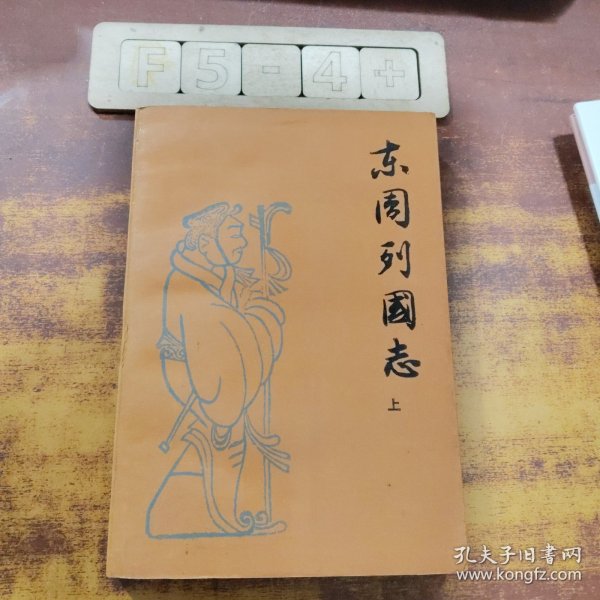 F5-4+
东周列國志
上
孔夫子旧書网
www.kongfz.com